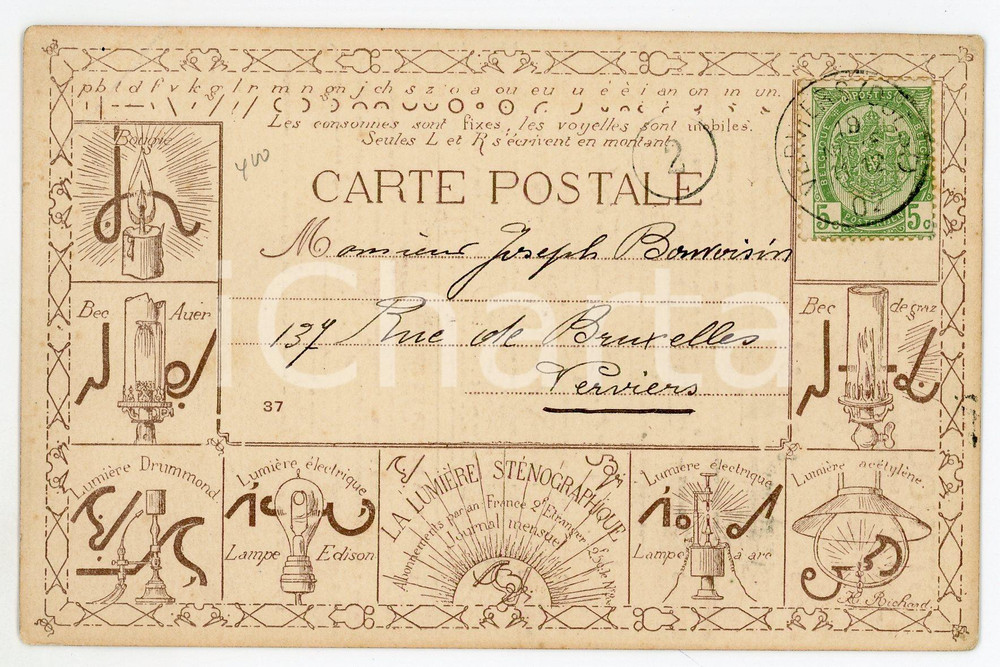 p b t d f v k g l r m n gn j ch s z o a ou eu u é è i an on in un.
Les consonnes sont fixes, les voyelles sont mobiles.
Seules L et R s'écrivent en montant.
Bougie
400
2
CARTE POSTALE
VERVIERS
BELGIQUE POSTES
5c 5c
POSTERIJEN
Monsieur Joseph Bonvoisin
137 Rue de Bruxelles
Verviers
37
Bec Auer
Bec de gaz
Lumière Drummond
Lumière électrique
Lampe Edison
LA LUMIÈRE STÉNOGRAPHIQUE
Abonnements par an France 2f Etranger
Journal mensuel
Lumière électrique
Lampe à arc
Lumière acétylène
Richard.
iCharta